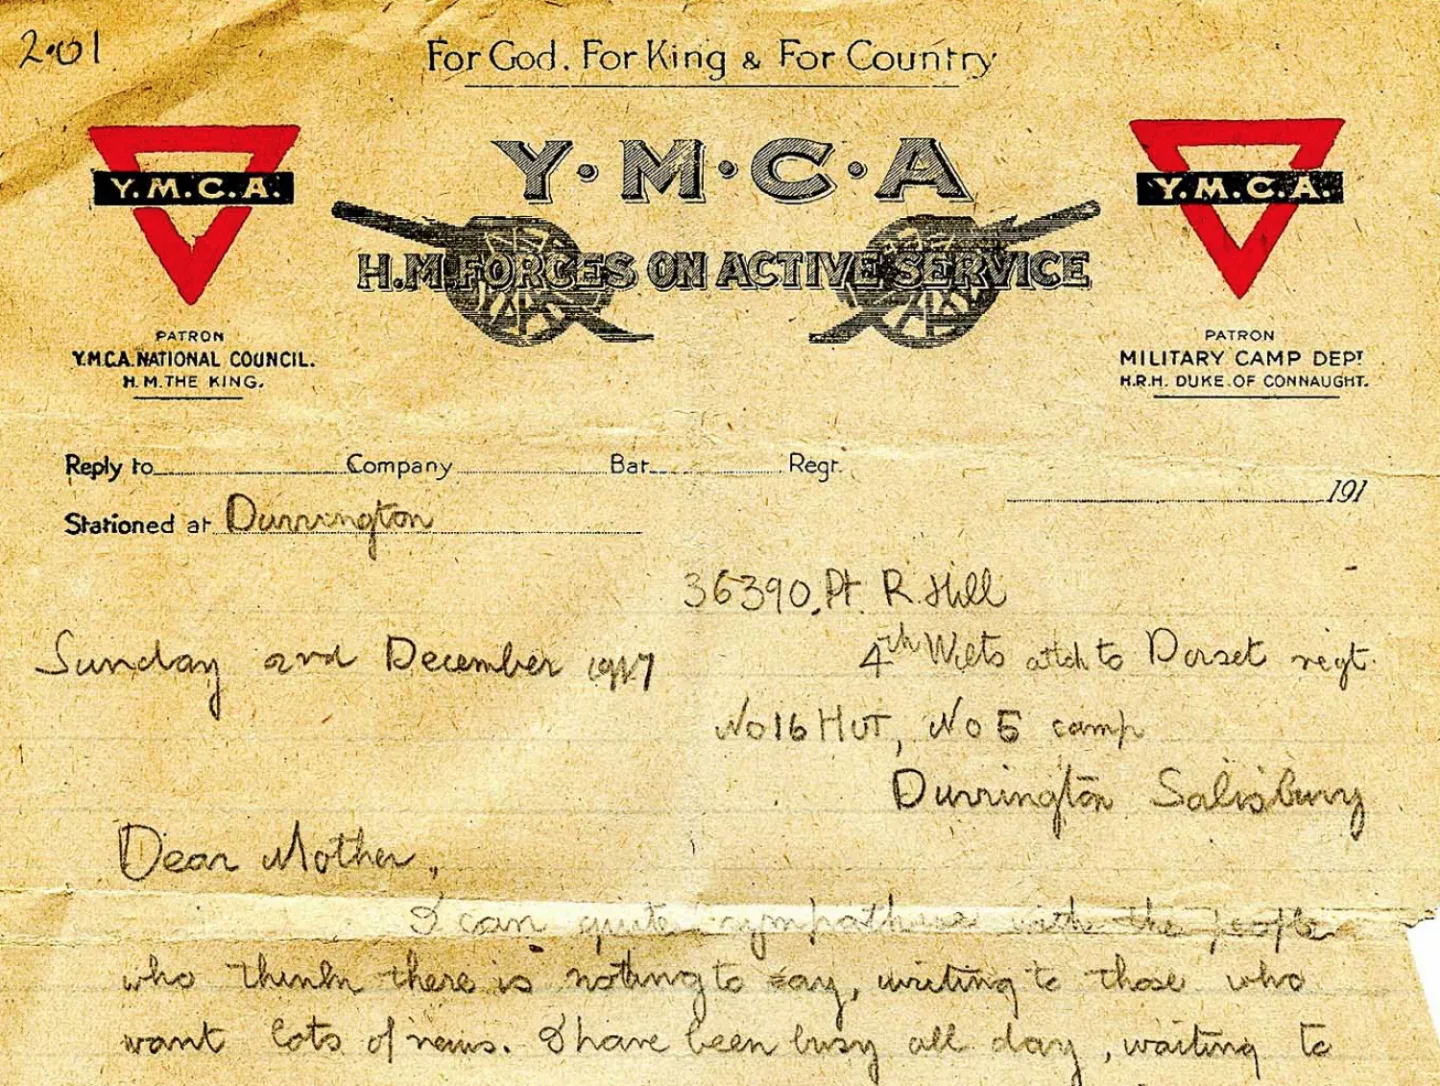 2.01
For God. For King & For Country
Y.M.C.A.
Y·M·C·A
Y.M.C.A.
H.M. FORCES ON ACTIVE SERVICE
PATRON
Y.M.C.A. NATIONAL COUNCIL.
H.M. THE KING.
PATRON
MILITARY CAMP DEPT
H.R.H. DUKE OF CONNAUGHT.
Reply to Company Bat. Regt.
191
Stationed at Durrington
36390, Pt. R. Hill
Sunday 2nd December 1917
4th Wilts attch to Dorset regt.
No 16 HUT, No 5 camp
Durrington Salisbury
Dear Mother,
I can quite sympathise with the people
who think there is nothing to say, writing to those who
want lots of news. I have been busy all day, waiting to